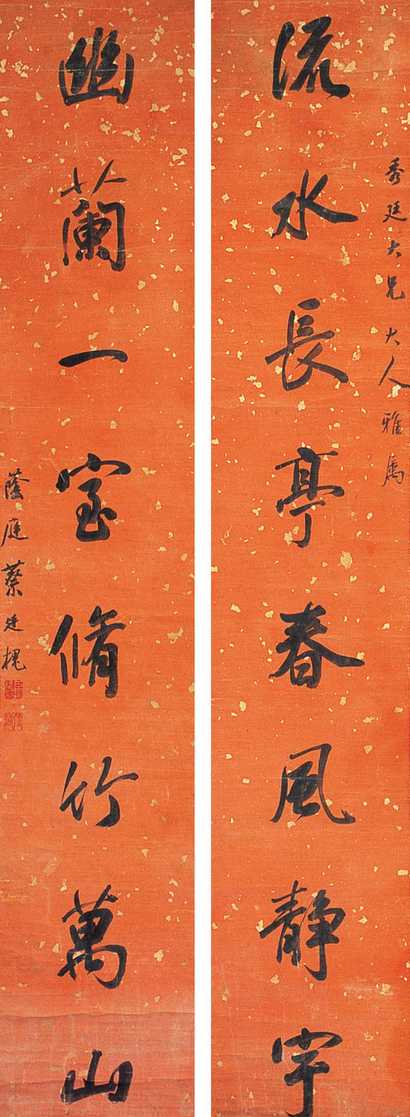 秀廷大兄大人雅属
流水長亭春風静宇
幽蘭一室脩竹萬山
蔭庭蔡廷槐